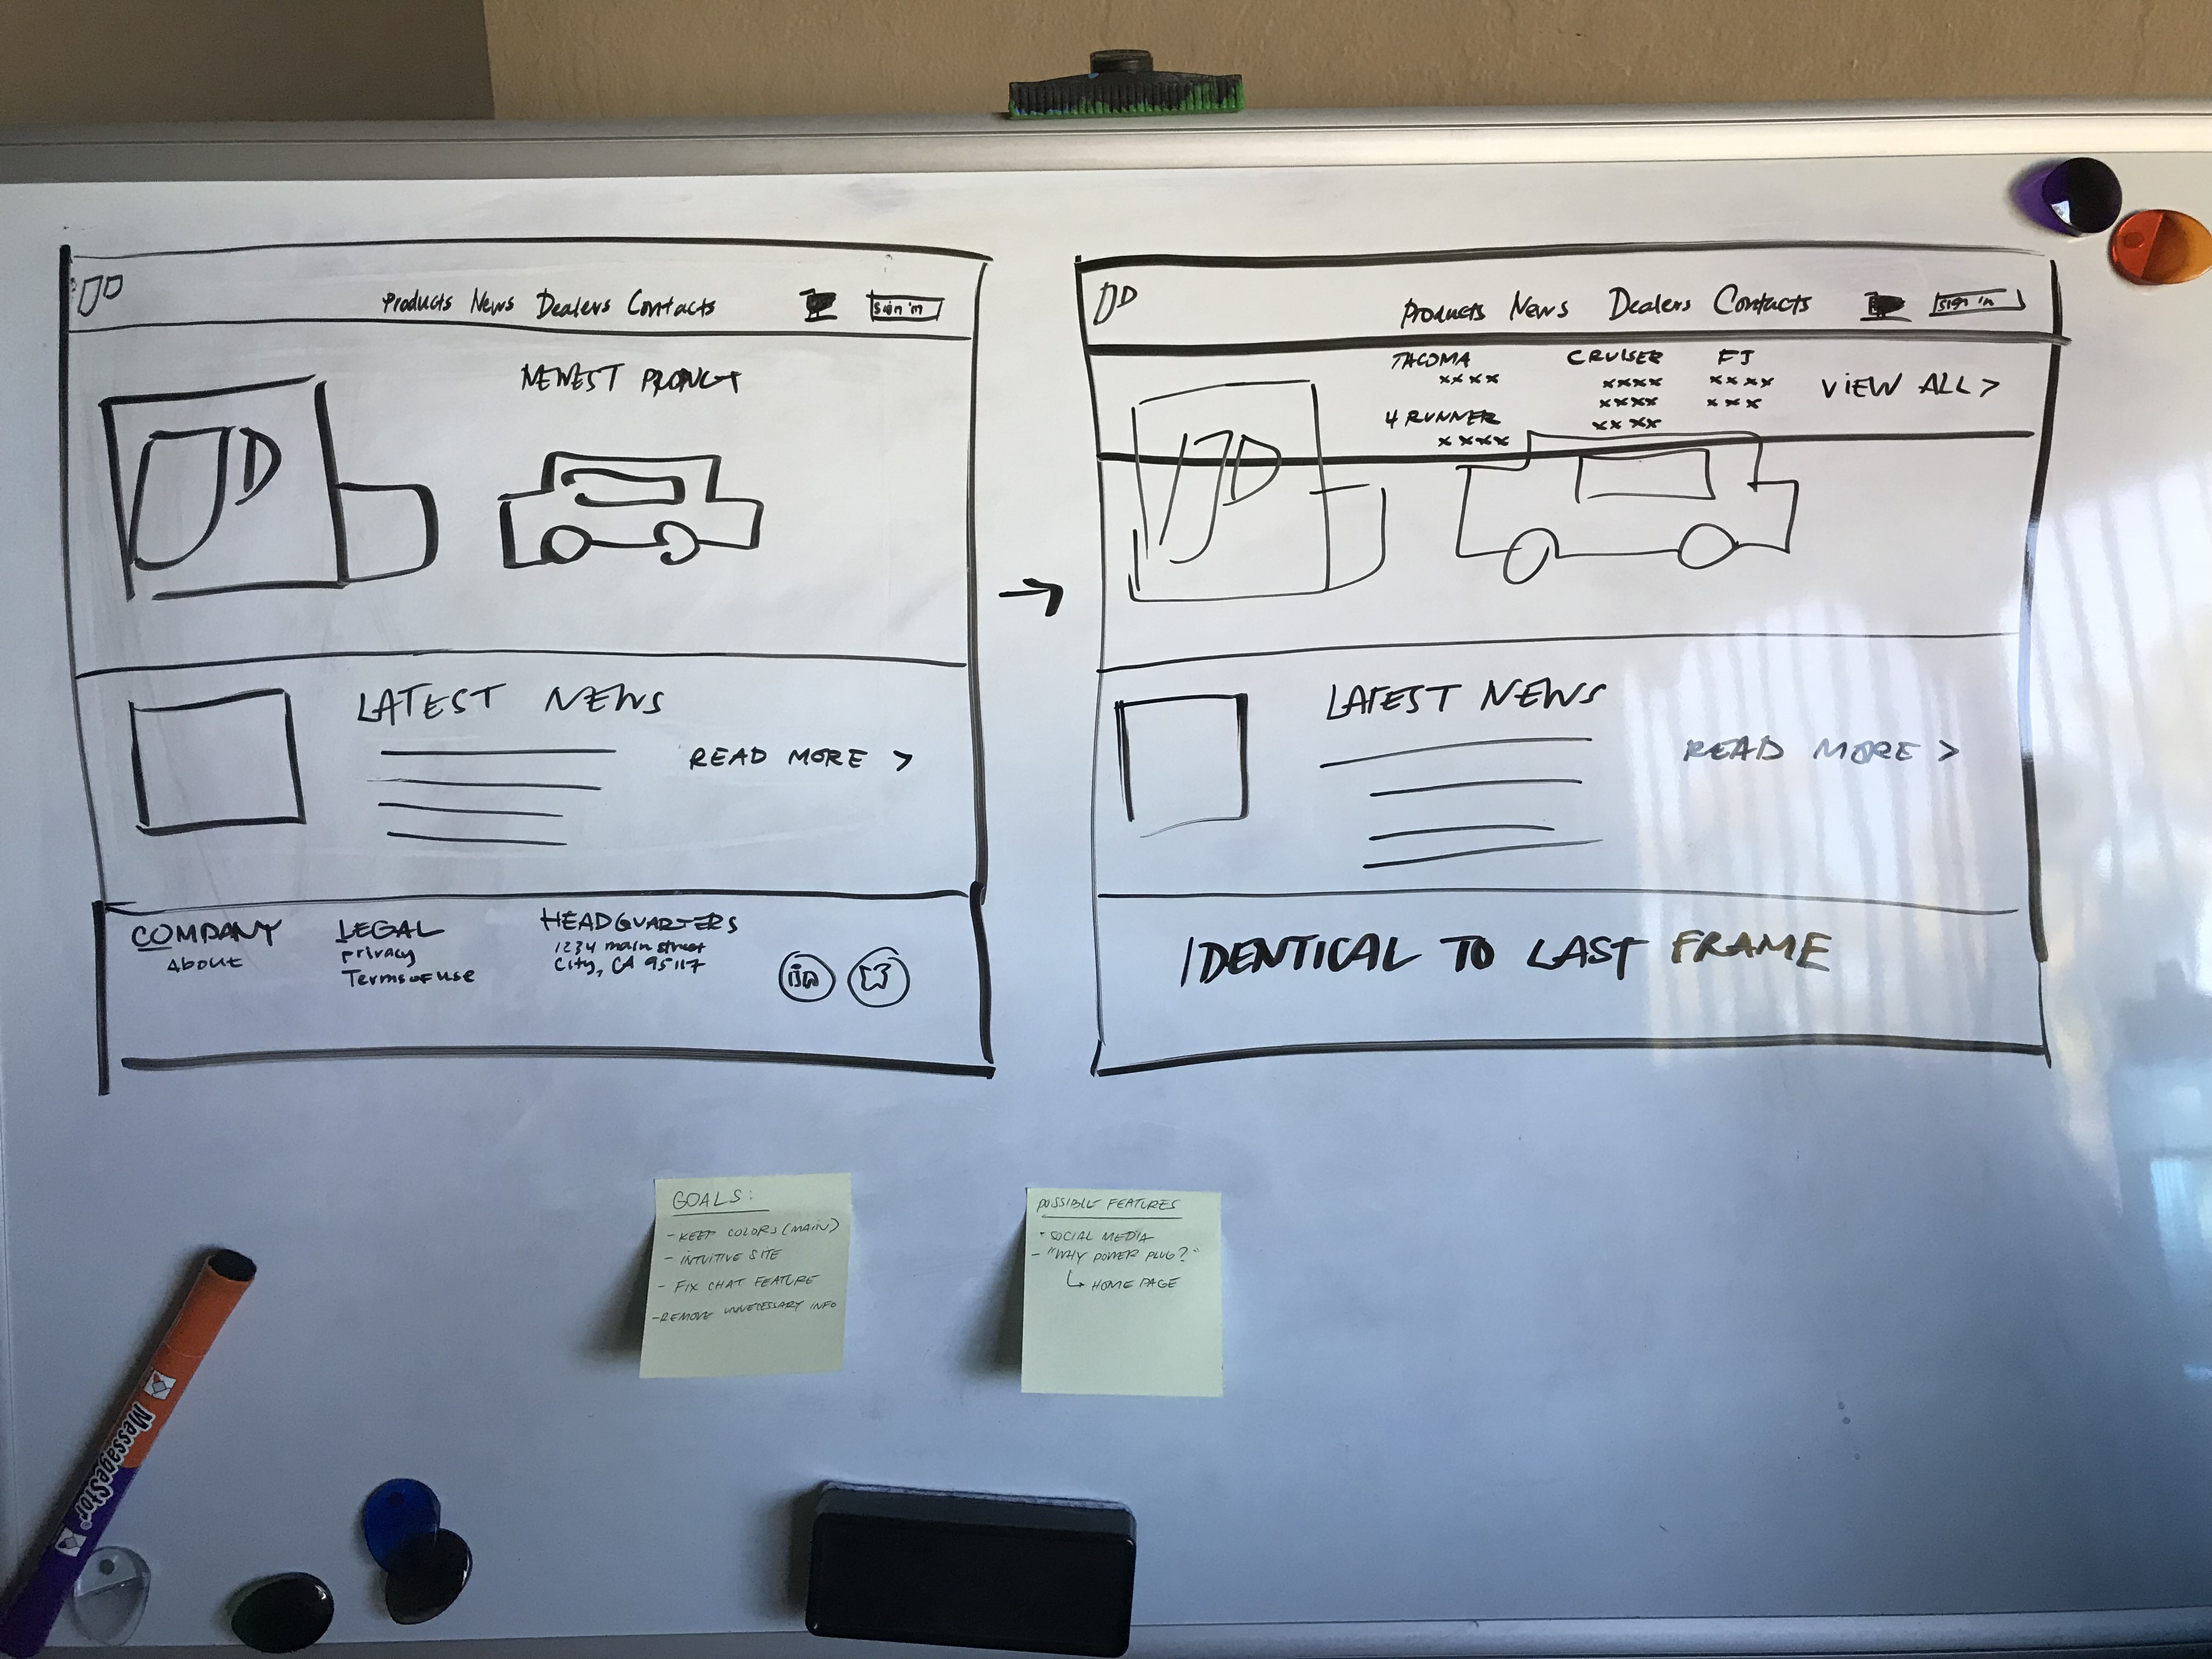 Products News Dealers Contacts
sign in
NEWEST PRODUCT
JD
LATEST NEWS
READ MORE >
COMPANY
About
LEGAL
privacy
Terms of use
HEADQUARTERS
1234 main street
City, CA 95117
in
→
Products News Dealers Contacts
sign in
TACOMA
xxxx
4 RUNNER
xxxx
CRUISER
xxxx
xxxx
xxxx
FJ
xxxx
xxx
VIEW ALL >
JD
LATEST NEWS
READ MORE >
IDENTICAL TO LAST FRAME
GOALS:
- KEEP COLORS (MAIN)
- INTUITIVE SITE
- FIX CHAT FEATURE
- REMOVE UNNECESSARY INFO
POSSIBLE FEATURES
- SOCIAL MEDIA
- "WHY POWER PLUG?"
↳ HOME PAGE
MessageStor®